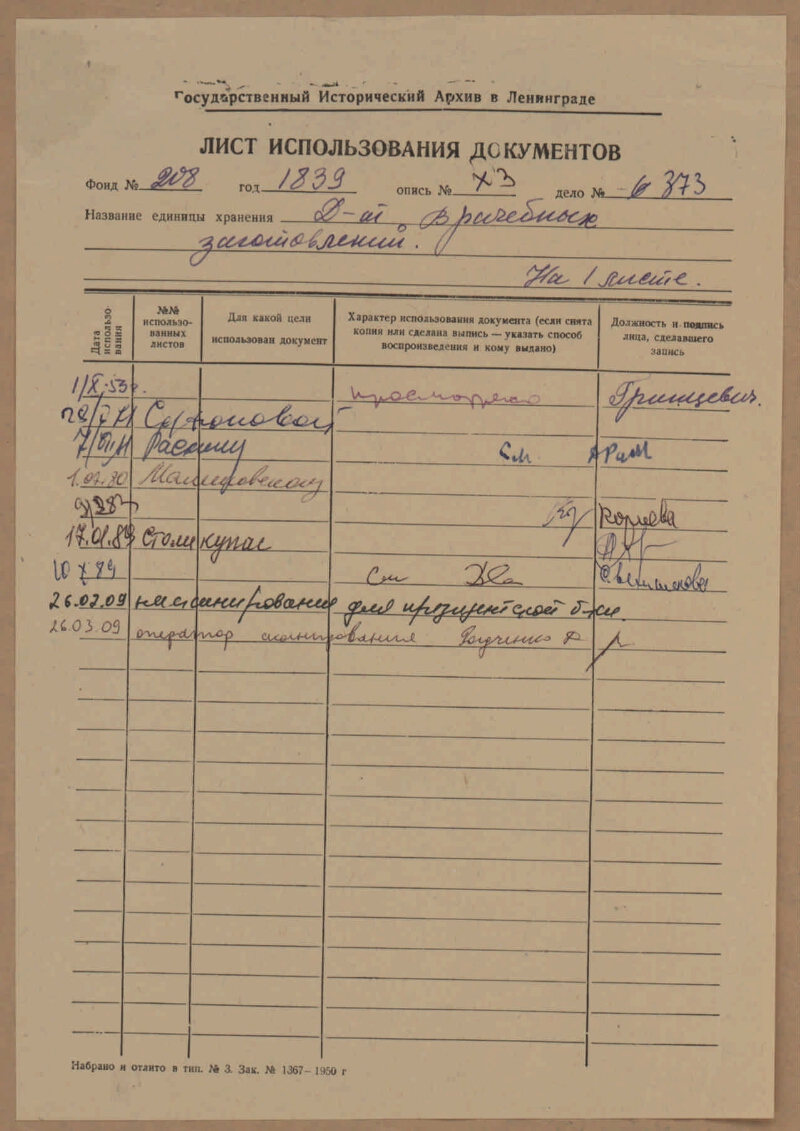 Государственный Исторический Архив в Ленинграде
ЛИСТ ИСПОЛЬЗОВАНИЯ ДОКУМЕНТОВ
Фонд № 208 год 1839 опись № дело № 373
Название единицы хранения Д-ат Врачебных
заготовлений.
На 1 листе.
Дата использования
№№ использо-
ванных
листов
Для какой цели
использован документ
Характер использования документа (если снята
копия или сделана выпись — указать способ
воспроизведения и кому выдано)
Должность и подпись
лица, сделавшего
запись
1/X-53г. просмотрено Грицевич.
Сафоновой
См
1.02.80 Малиновскому
Корнева
17.01.89
10 X 89 См
26.02.09 для президентской б-ки.
26.03.09 оператор сканирования
Набрано и отлито в тип. № 3. Зак. № 1367—1950 г